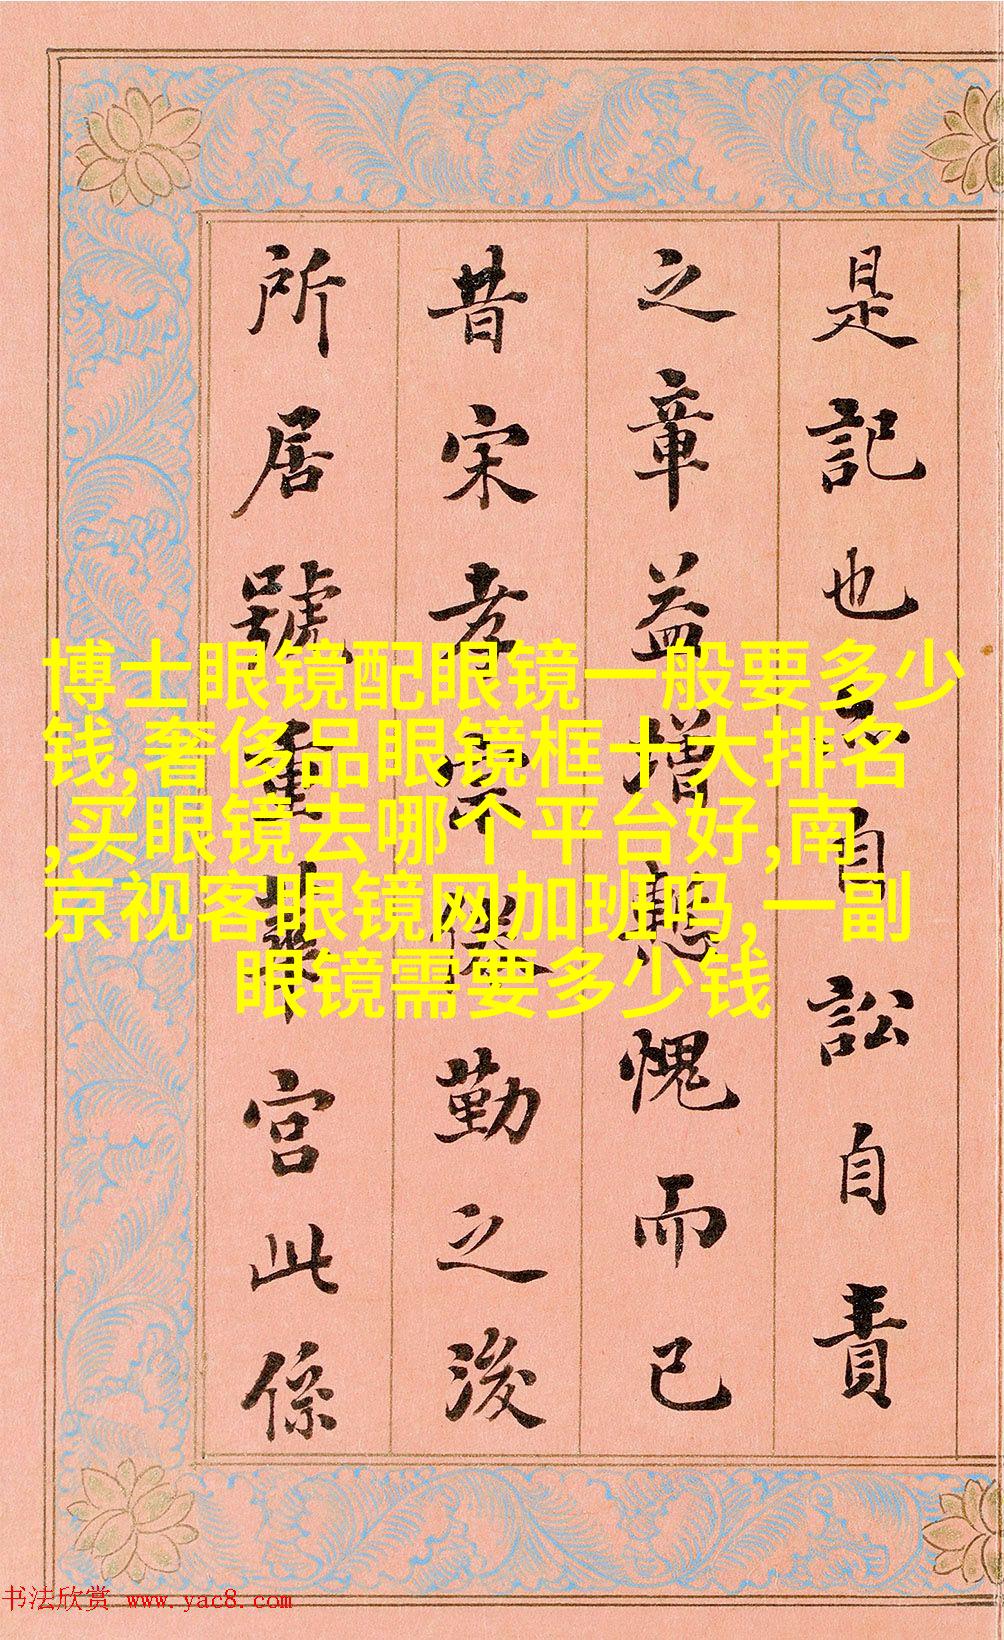 是記也自訟自責
之章益增慙愧而已
昔宋孝宗勤之後
所居號重華宮此係
博士眼镜配眼镜一般要多少
钱,奢侈品眼镜框十大排名
,买眼镜去哪个平台好,南
京视客眼镜网加班吗,一副
眼镜需要多少钱
书法欣赏 www.yac8.com